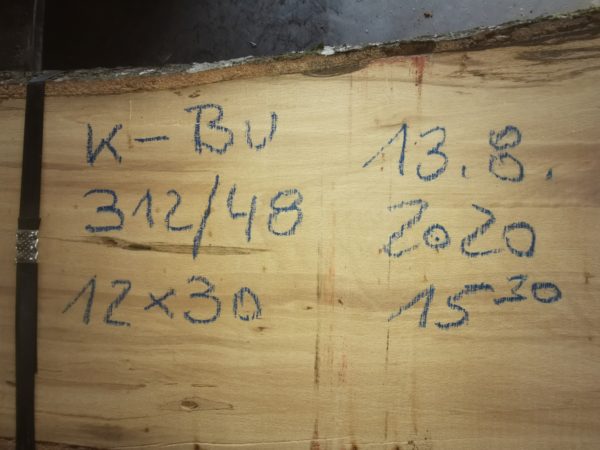 K-Bu
312/48
12x30
13.8.
2020
15³⁰